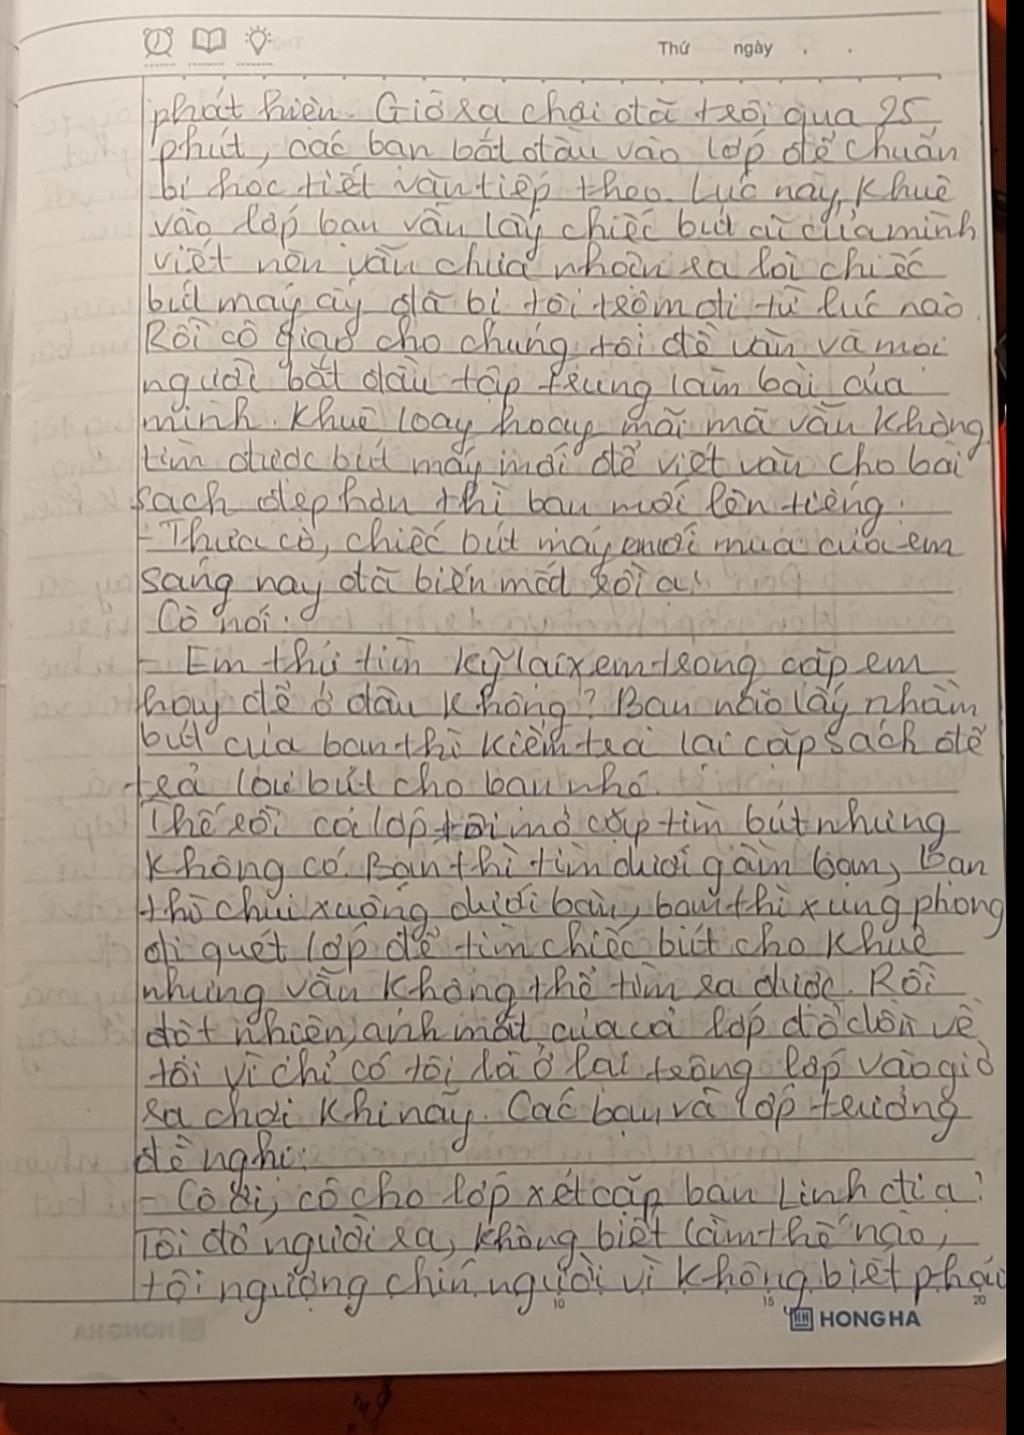 Thứ ngày . .
phát hiện. Giờ ra chơi đã trôi qua 25
phút, các bạn bắt đầu vào lớp để chuẩn
bị học tiết văn tiếp theo. Lúc này, Khuê
vào lớp bạn vẫn lấy chiếc bút cũ của mình
viết nên vẫn chưa nhận ra rồi chiếc
bút máy ấy đã bị tôi trộm đi từ lúc nào.
Rồi cô giao cho chúng tôi đề văn và mọi
người bắt đầu tập trung làm bài của
mình. Khuê loay hoay mãi mà vẫn không
tìm được bút máy mới để viết văn cho bài
sạch đẹp hơn thì bạn mới lên tiếng:
- Thưa cô, chiếc bút máy mới mua của em
sáng nay đã biến mất rồi ạ!
Cô nói:
- Em thử tìm kỹ lại xem trong cặp em
hay để ở đâu không? Bạn nào lấy nhầm
bút của bạn thì kiểm tra lại cặp sách để
trả lại bút cho bạn nhé.
Thế rồi cả lớp tôi mở cặp tìm bút nhưng
không có. Bạn thì tìm dưới gầm bàn, bạn
thì chui xuống dưới bàn, bạn thì xung phong
đi quét lớp để tìm chiếc bút cho Khuê
nhưng vẫn không thể tìm ra được. Rồi
đột nhiên, ánh mắt của cả lớp đổ dồn về
tôi vì chỉ có tôi là ở lại trông lớp vào giờ
ra chơi khi nãy. Các bạn và lớp trưởng
đề nghị:
- Cô ơi, cô cho lớp xét cặp bạn Linh đi ạ!
Tôi đờ người ra, không biết làm thế nào,
tôi ngượng chín người vì không biết phải
10 15 20
HONG HA